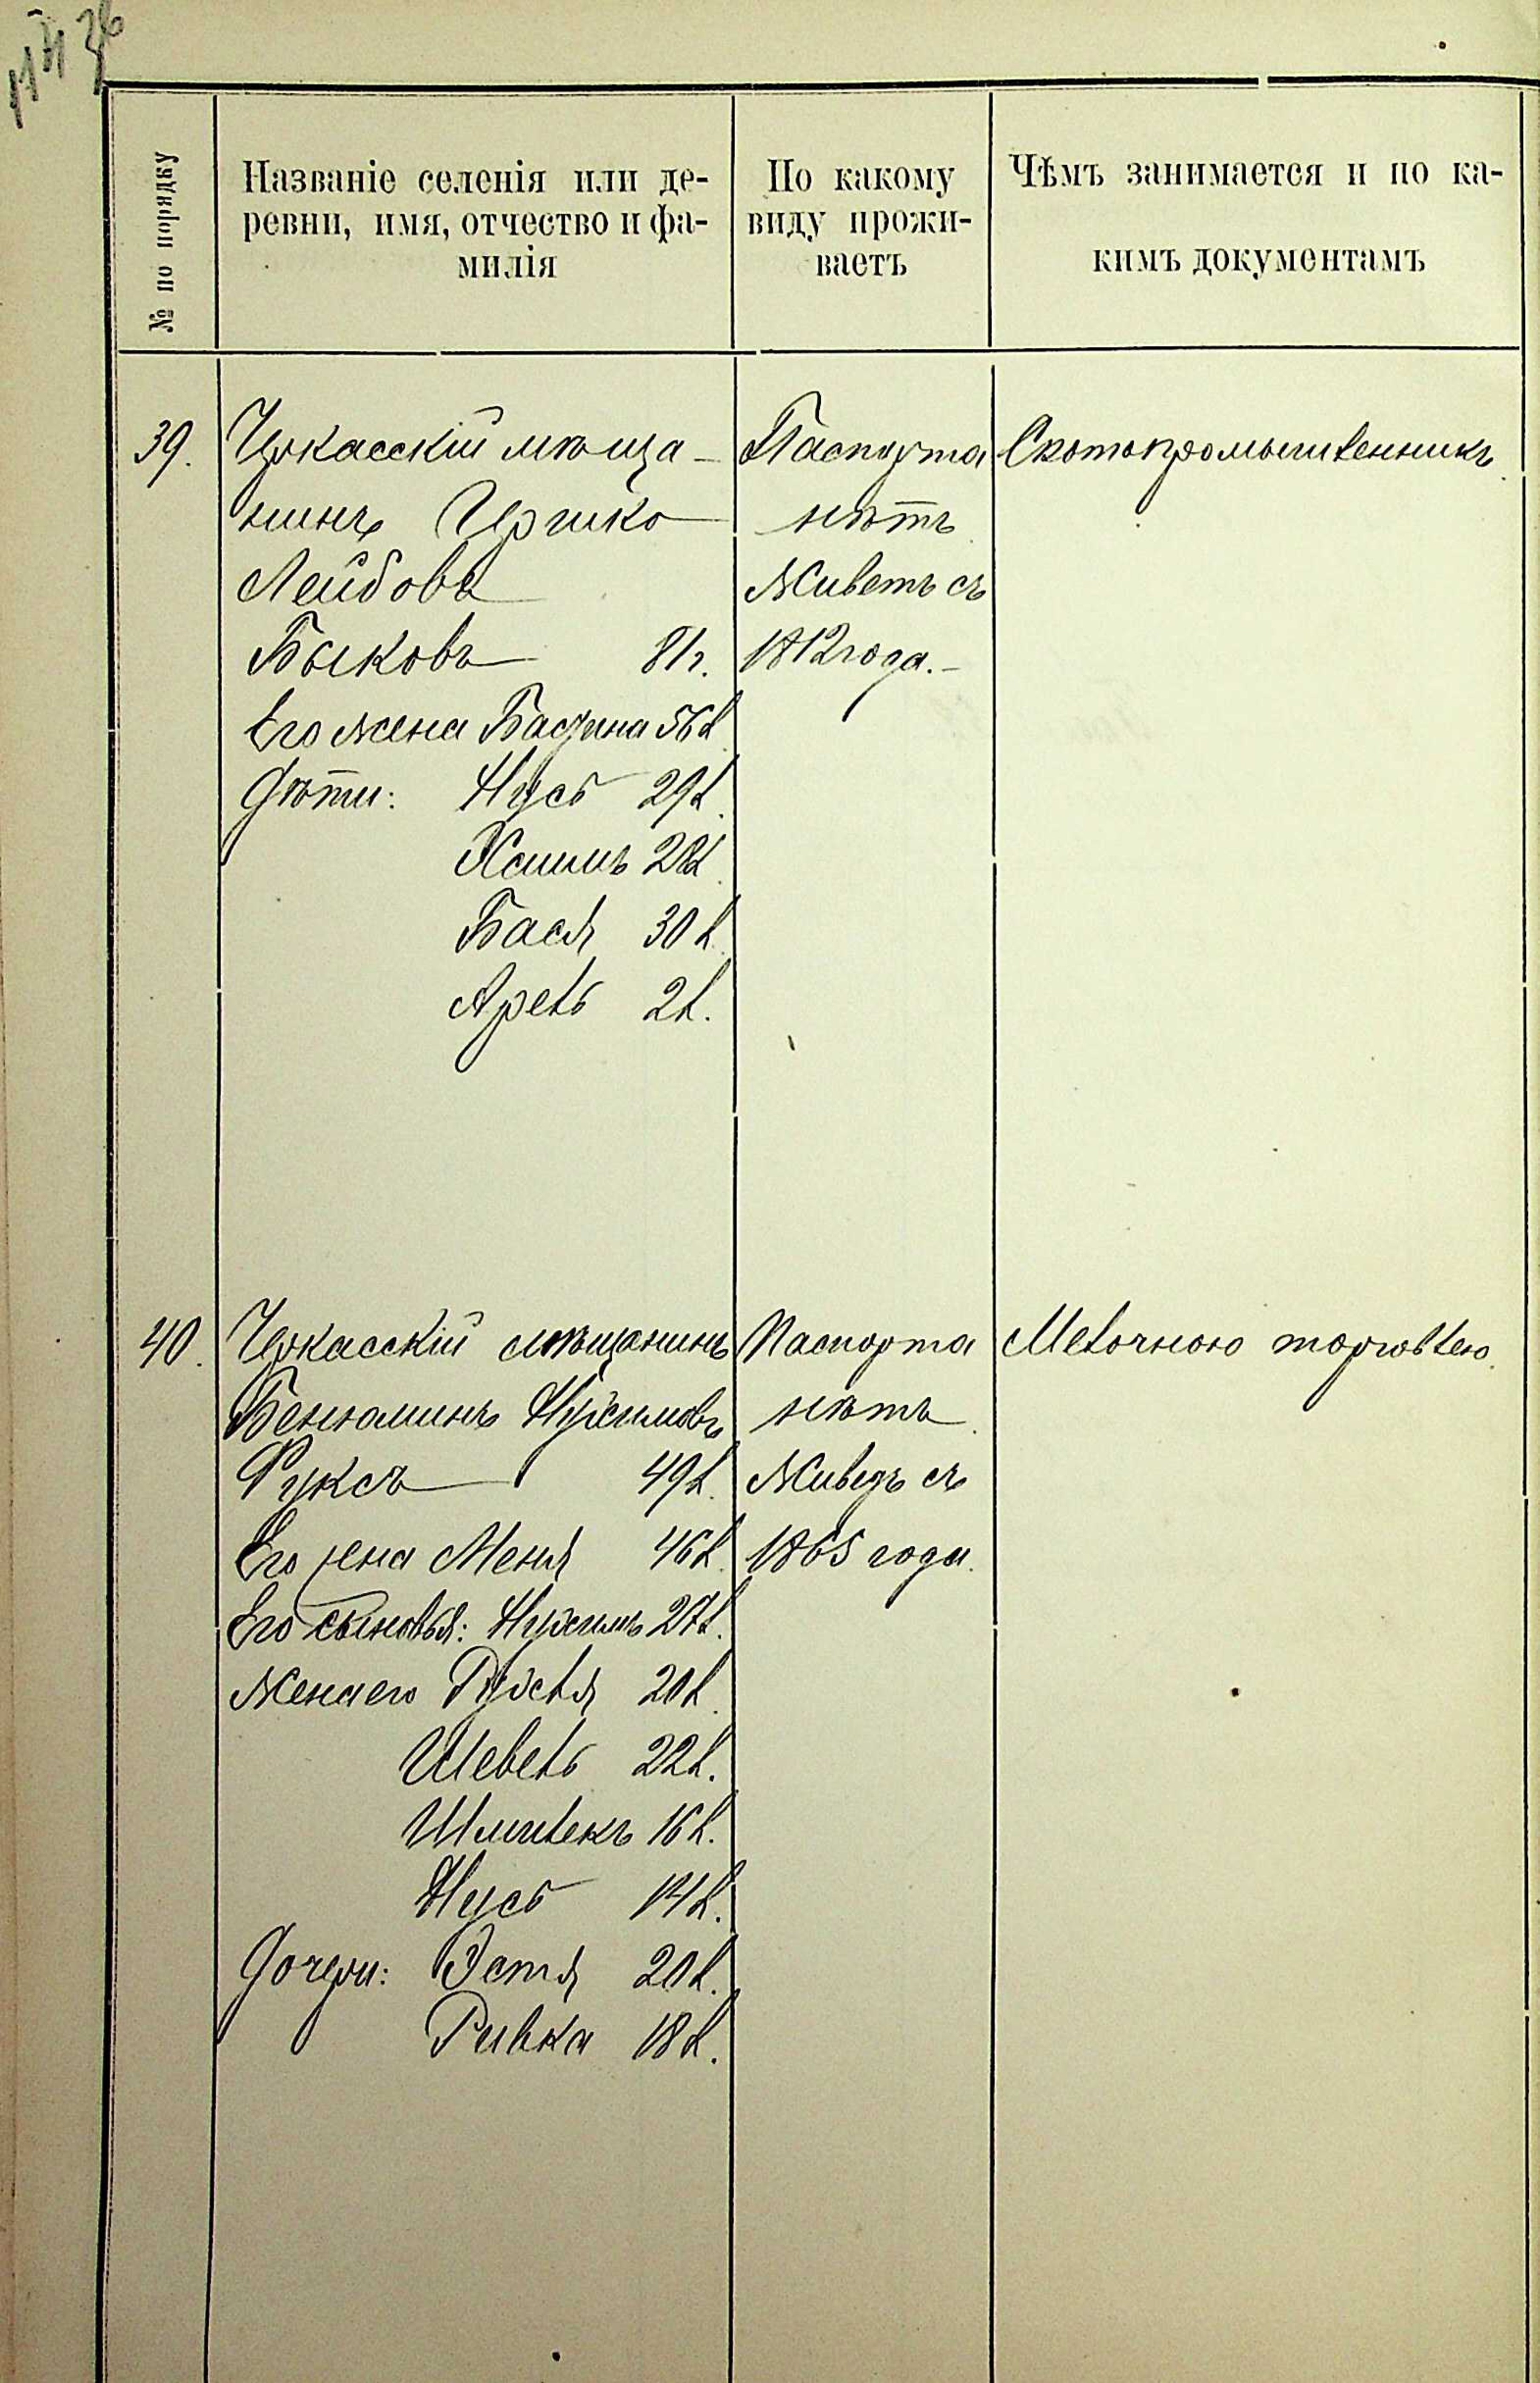 № по порядку
Названіе селенія или де-
ревни, имя, отчество и фа-
милія
По какому
виду прожи-
ваетъ
Чѣмъ занимается и по ка-
кимъ документамъ
39.
Черкасскій мѣща-
нинъ Иршко
Лейбовъ
Быковъ 81 г.
Его жена Басшина 56 л.
Дѣти: Нусь 29 л.
Хаимъ 28 л.
Бася 30 л.
Арель 2 л.
Паспорта
нѣтъ
Живетъ съ
1812 года.-
Скотопромышленникъ
40.
Черкасскій мѣщанинъ
Бенюминъ Нухимовъ
Фуксъ 49 л.
Его жена Меня 46 л.
Его сыновья: Нухимъ 27 л.
Жена его 20 л.
Шевель 22 л.
Шмилекъ 16 л.
Нусь 14 л.
Дочери: Эстя 20 л.
Ривка 18 л.
Паспорта
нѣтъ
Живетъ съ
1865 года.
Мелочною торговлею.